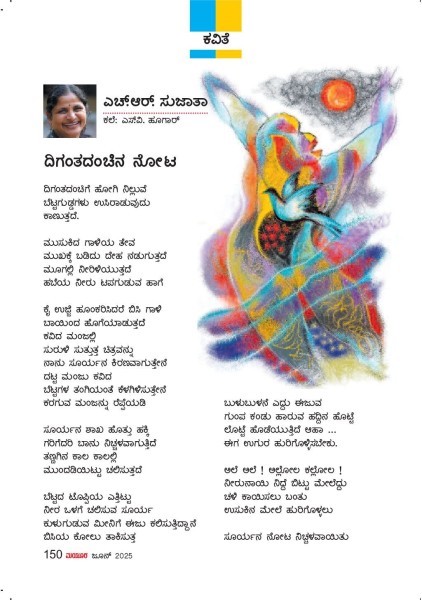 ಕವಿತೆ
ಎಚ್‌ಆರ್ ಸುಜಾತಾ
ಕಲೆ: ಎಸ್‌ವಿ. ಹೂಗಾರ್
ದಿಗಂತದಂಚಿನ ನೋಟ
ದಿಗಂತದಂಚಿಗೆ ಹೋಗಿ ನಿಲ್ಲುವೆ
ಬೆಟ್ಟಗುಡ್ಡಗಳು ಉಸಿರಾಡುವುದು
ಕಾಣುತ್ತದೆ.
ಮುಸುಕಿದ ಗಾಳಿಯ ತೇವ
ಮುಖಕ್ಕೆ ಬಡಿದು ದೇಹ ನಡುಗುತ್ತದೆ
ಮೂಗಲ್ಲಿ ನೀರಿಳಿಯುತ್ತದೆ
ಹಬೆಯ ನೀರು ಟಪಗುಡುವ ಹಾಗೆ
ಕೈ ಉಜ್ಜಿ ಹೂಂಕರಿಸಿದರೆ ಬಿಸಿ ಗಾಳಿ
ಬಾಯಿಂದ ಹೊಗೆಯಾಡುತ್ತದೆ
ಕವಿದ ಮಂಜಲ್ಲಿ
ಸುರುಳಿ ಸುತ್ತುತ್ತ ಚಿತ್ರವನ್ನು
ನಾನು ಸೂರ್ಯನ ಕಿರಣವಾಗುತ್ತೇನೆ
ದಟ್ಟ ಮಂಜು ಕವಿದ
ಬೆಟ್ಟಗಳ ತಂಗಿಯಂತೆ ಕೆಳಗಿಳಿಸುತ್ತೇನೆ
ಕರಗುವ ಮಂಜನ್ನು ರೆಪ್ಪೆಯಡಿ
ಸೂರ್ಯನ ಶಾಖ ಹೊತ್ತು ಹಕ್ಕಿ
ಗರಿಗೆದರಿ ಬಾನು ನಿಚ್ಚಳವಾಗುತ್ತದೆ
ತಣ್ಣಗಿನ ಕಾಲ ಕಾಲಲ್ಲಿ
ಮುಂದಡಿಯಿಟ್ಟು ಚಲಿಸುತ್ತದೆ
ಬೆಟ್ಟದ ಟೊಪ್ಪಿಯ ಎತ್ತಿಟ್ಟು
ನೀರ ಒಳಗೆ ಚಲಿಸುವ ಸೂರ್ಯ
ಕುಳುಗುಡುವ ಮೀನಿಗೆ ಈಜು ಕಲಿಸುತ್ತಿದ್ದಾನೆ
ಬಿಸಿಯ ಕೋಲು ತಾಕಿಸುತ್ತ
ಬುಳುಬುಳನೆ ಎದ್ದು ಈಜುವ
ಗುಂಪ ಕಂಡು ಹಾರುವ ಹದ್ದಿನ ಹೊಟ್ಟೆ
ಲೊಟ್ಟೆ ಹೊಡೆಯುತ್ತಿದೆ ಆಹಾ ...
ಈಗ ಉಗುರ ಹುರಿಗೊಳ್ಳಿಸಬೇಕು.
ಅಲೆ ಅಲೆ ! ಅಲ್ಲೋಲ ಕಲ್ಲೋಲ !
ನೀರುನಾಯಿ ನಿದ್ದೆ ಬಿಟ್ಟು ಮೇಲೆದ್ದು
ಚಳಿ ಕಾಯಿಸಲು ಬಂತು
ಉಸುಕಿನ ಮೇಲೆ ಹುರಿಗೊಳ್ಳಲು
ಸೂರ್ಯನ ನೋಟ ನಿಚ್ಚಳವಾಯಿತು
150 ಮಯೂರ ಜೂನ್ 2025